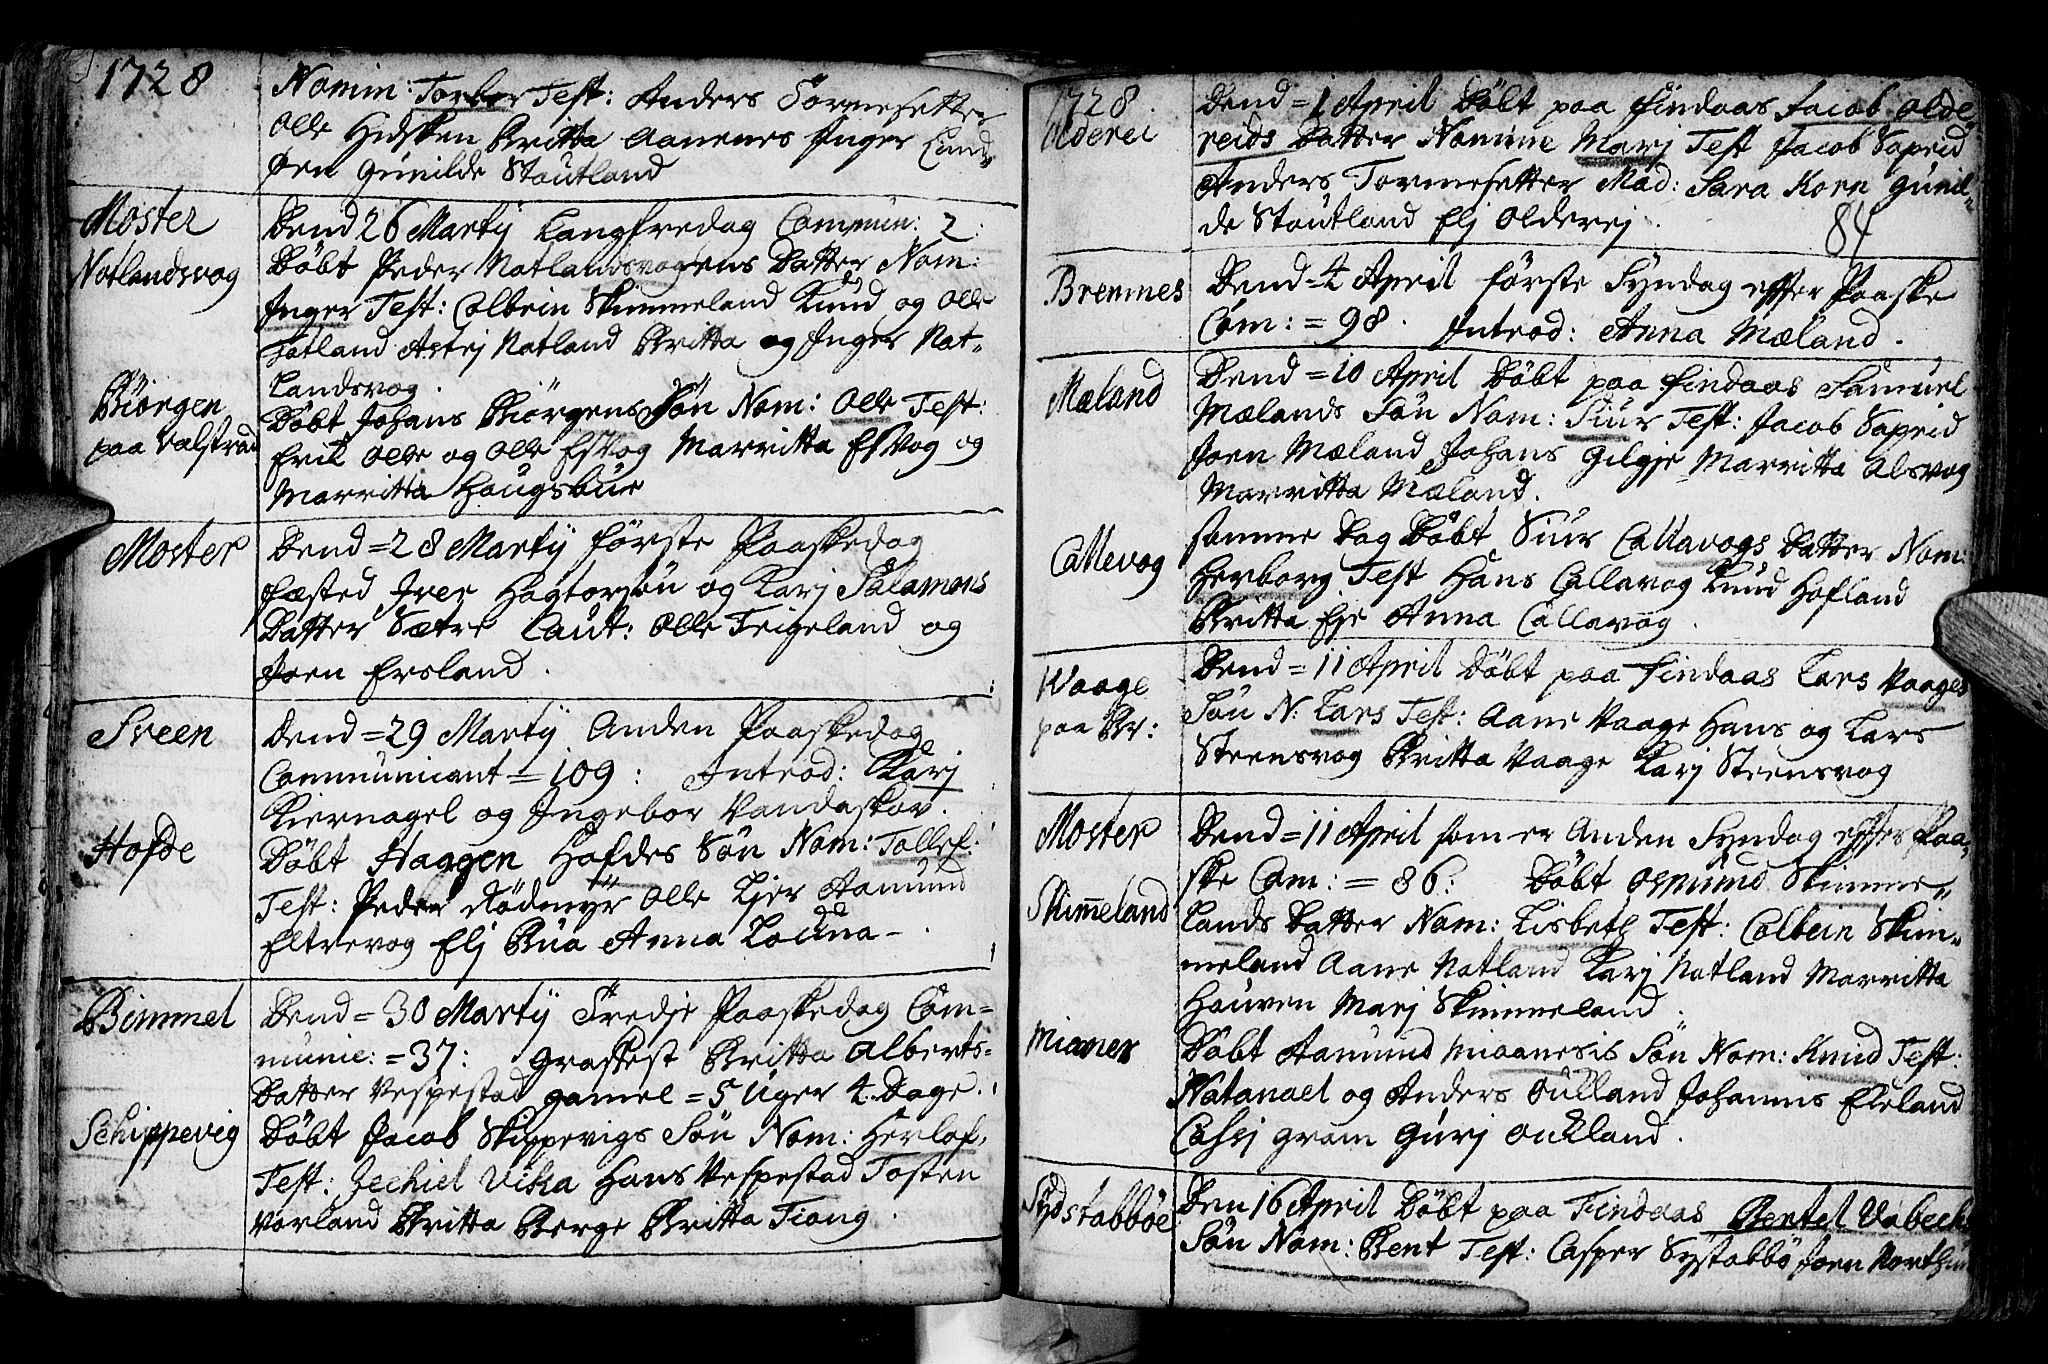 1728
Nomin: Torber Test: Anders Tormesetter
Olle Hidsken Britta Aanenes Inger Lund-
øen Gunilde Stoutland
Moster
Dend 26 Martij Langfredag Commun: 2:
Notlandsvog
Döbt Peder Notlandsvogens Datter Nom:
Inger Test: Colbein Skimmeland Knud og Olle
Hatland Astrj Notland Britta og Inger Not-
Landsvog.
Biörgen
paa Valstrad
Döbt Johans Biörgens Sön Nom: Olle Test:
Erik Olle og Olle Esvog Marritta Esvog og
Marritta Haugsbue
Moster
Dend = 28 Martij förste Paaskedag
fæsted Iver Hagtorsön og Karj Salamons
Datter Sætre Caut: Olle Teigeland og
Joen Ersland.
Sveen
Dend = 29 Martij Anden Paaskedag
Communicant = 109: Introd: Karj
Kiernagel og Ingebor Vandaskov.
Hofde
Döbt Haagen Hofdes Sön Nom: Tollef:
Test: Peder Rödmÿr Olle Kjer Aamund
Eltrevog Elj Bua Anna Locuna -
Bimmel
Dend = 30 Martij Tredje Paaskedag Com-
munic: = 37: Grafest Britta Alberts-
Datter Vespestad gamel = 5 Uger 4 Dage.
Schippevig
Döbt Jacob Skippevigs Sön Nom: Herlof,
Test: Zechiel Vika Hans Vespestad Tosten
Vorland Britta Berge Britta Tiong.
1728.
Olderei
Dend = 1 April Döbt paa Findaas Jacob Olde-
reids Datter Nomine Marj Test Jacob Soreid
Anders Tormesetter Mad: Sara Korn Gunil-
de Stoutland Elj Olderej.
84
Bremnes
Dend = 4 April förste Syndag effter Paaske
Com: = 98. Introd: Anna Mæland.
Mæland
Dend = 10 April Döbt paa Findaas Samuel
Mælands Sön Nom: Siur Test: Jacob Soreid
Joen Mæland Johans Gilgje Marritta Alsvog
Marritta Mæland.
Callevog
samme Dag Döbt Siur Callavogs Datter Nom:
Herborg Test Hans Callavog Knud Hofland
Britta Eje Anna Callavog.
Waage
paa Br:
Dend = 11 April Döbt paa Findaas Lars Vaages
Sön N: Lars Test: Aane Vaage Hans og Lars
Steensvog Britta Vaage Karj Steensvog
Moster
Dend = 11 April som er Anden Syndag effter Paa-
ske Com: = 86: Döbt Osmund Skimme-
Skimeland
lands Datter Nom: Lisbeth Test: Colbein Skim-
meland Aane Notland Karj Notland Marritta
Hauven Marj Skimmeland.
Mianes
Döbt Aamund Miaanesis Sön Nom: Knud Test:
Natanael og Anders Oukland Johannis Eleland
Casej Gram Gurj Oukland.
Sydstabböe
Den 16 April Döbt paa Findaas Bentel Vabech
Sön Nom: Bent Test: Casper Systabbö Joen